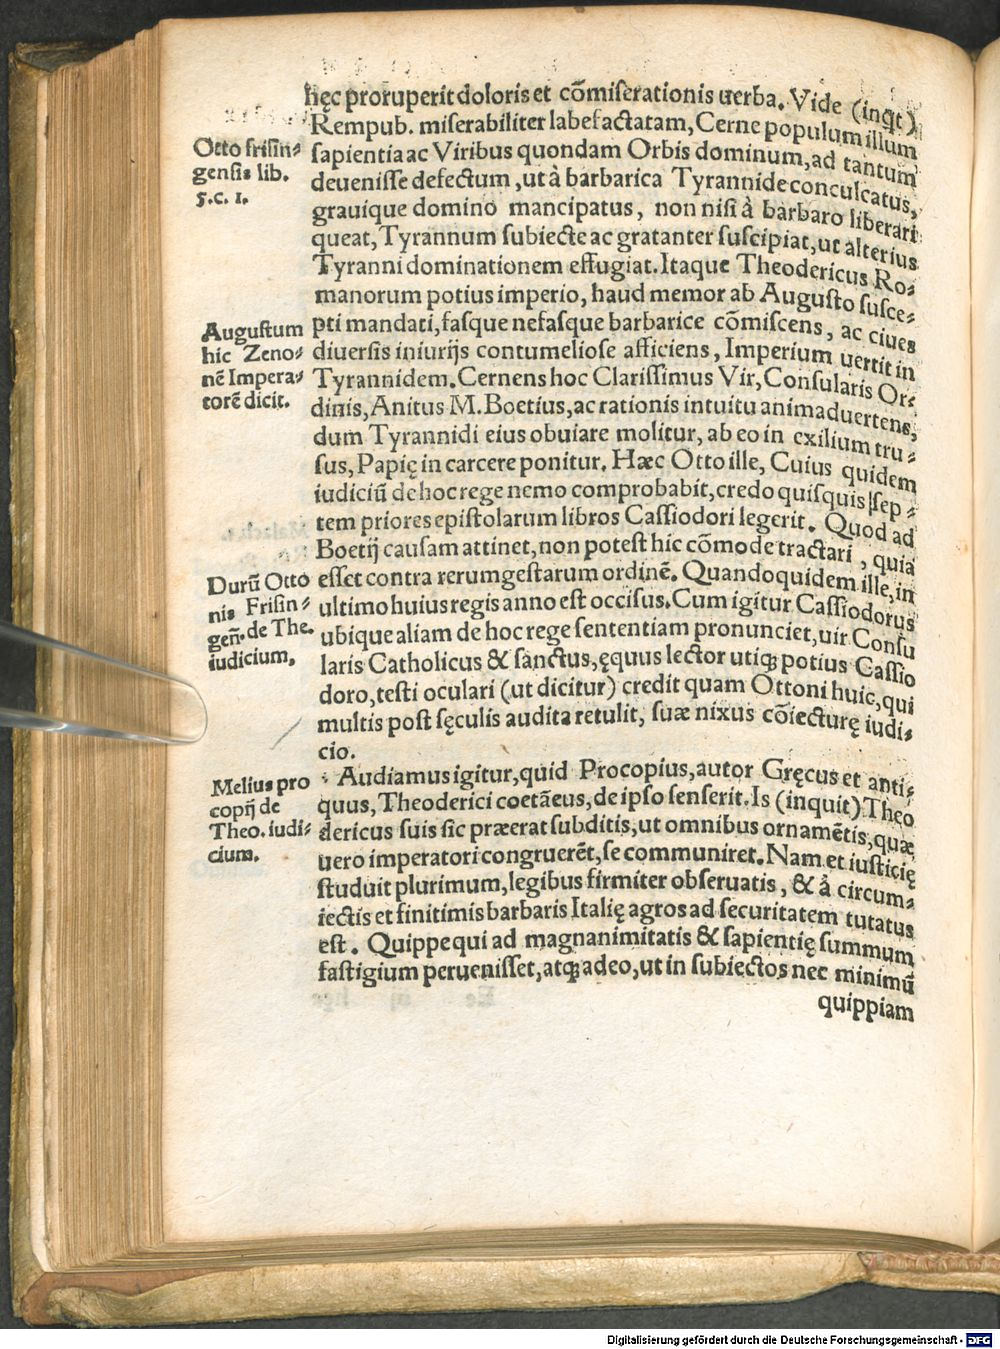 hęc proruperit doloris et cõmiserationis uerba. Vide (inqt)
Rempub. miserabiliter labefactatam, Cerne populum illum
sapientia ac Viribus quondam Orbis dominum, ad tantum
deuenisse defectum, ut à barbarica Tyrannide conculcatus,
grauique domino mancipatus, non nisi à barbaro liberari
queat, Tyrannum subiecte ac gratanter suscipiat, ut alterius
Tyranni dominationem effugiat. Itaque Theodericus Ro-
manorum potius imperio, haud memor ab Augusto susce-
pti mandati, fasque nefasque barbarice cõmiscens, ac ciues
diuersis iniurijs contumeliose afficiens, Imperium uertit in
Tyrannidem. Cernens hoc Clarissimus Vir, Consularis Or-
dinis, Anitus M. Boetius, ac rationis intuitu animaduertens,
dum Tyrannidi eius obuiare molitur, ab eo in exilium tru-
sus, Papię in carcere ponitur. Hæc Otto ille, Cuius quidem
iudiciũ de hoc rege nemo comprobabit, credo quisquis sep-
tem priores epistolarum libros Cassiodori legerit. Quod ad
Boetij causam attinet, non potest hic cõmode tractari, quia
esset contra rerum gestarum ordinẽ. Quandoquidem ille, in
ultimo huius regis anno est occisus. Cum igitur Cassiodorus
ubique aliam de hoc rege sententiam pronunciet, uir Consu
laris Catholicus & sanctus, ęquus lector utiqꝫ potius Cassio
doro, testi oculari (ut dicitur) credit quam Ottoni huic, qui
multis post sęculis audita retulit, suæ nixus cõiecturę iudi-
cio.
Audiamus igitur, quid Procopius, autor Gręcus et anti-
quus, Theoderici coetãeus, de ipso senserit. Is (inquit) Theo
dericus suis sic præerat subditis, ut omnibus ornamẽtis, quæ
uero imperatori congruerẽt, se communiret. Nam et iusticię
studuit plurimum, legibus firmiter obseruatis, & à circum-
iectis et finitimis barbaris Italię agros ad securitatem tutatus
est. Quippe qui ad magnanimitatis & sapientię summum
fastigium peruenisset, atqꝫ adeo, ut in subiectos nec minimũ
quippiam
Otto frisin-
gensis lib.
5.c. 1.
Augustum
hic Zeno-
nẽ Impera-
torẽ dicit.
Durũ Otto
nis Frisin-
geñ. de The.
iudicium.
Melius pro
copij de
Theo. iudi-
cium.
Digitalisierung gefördert durch die Deutsche Forschungsgemeinschaft - DFG